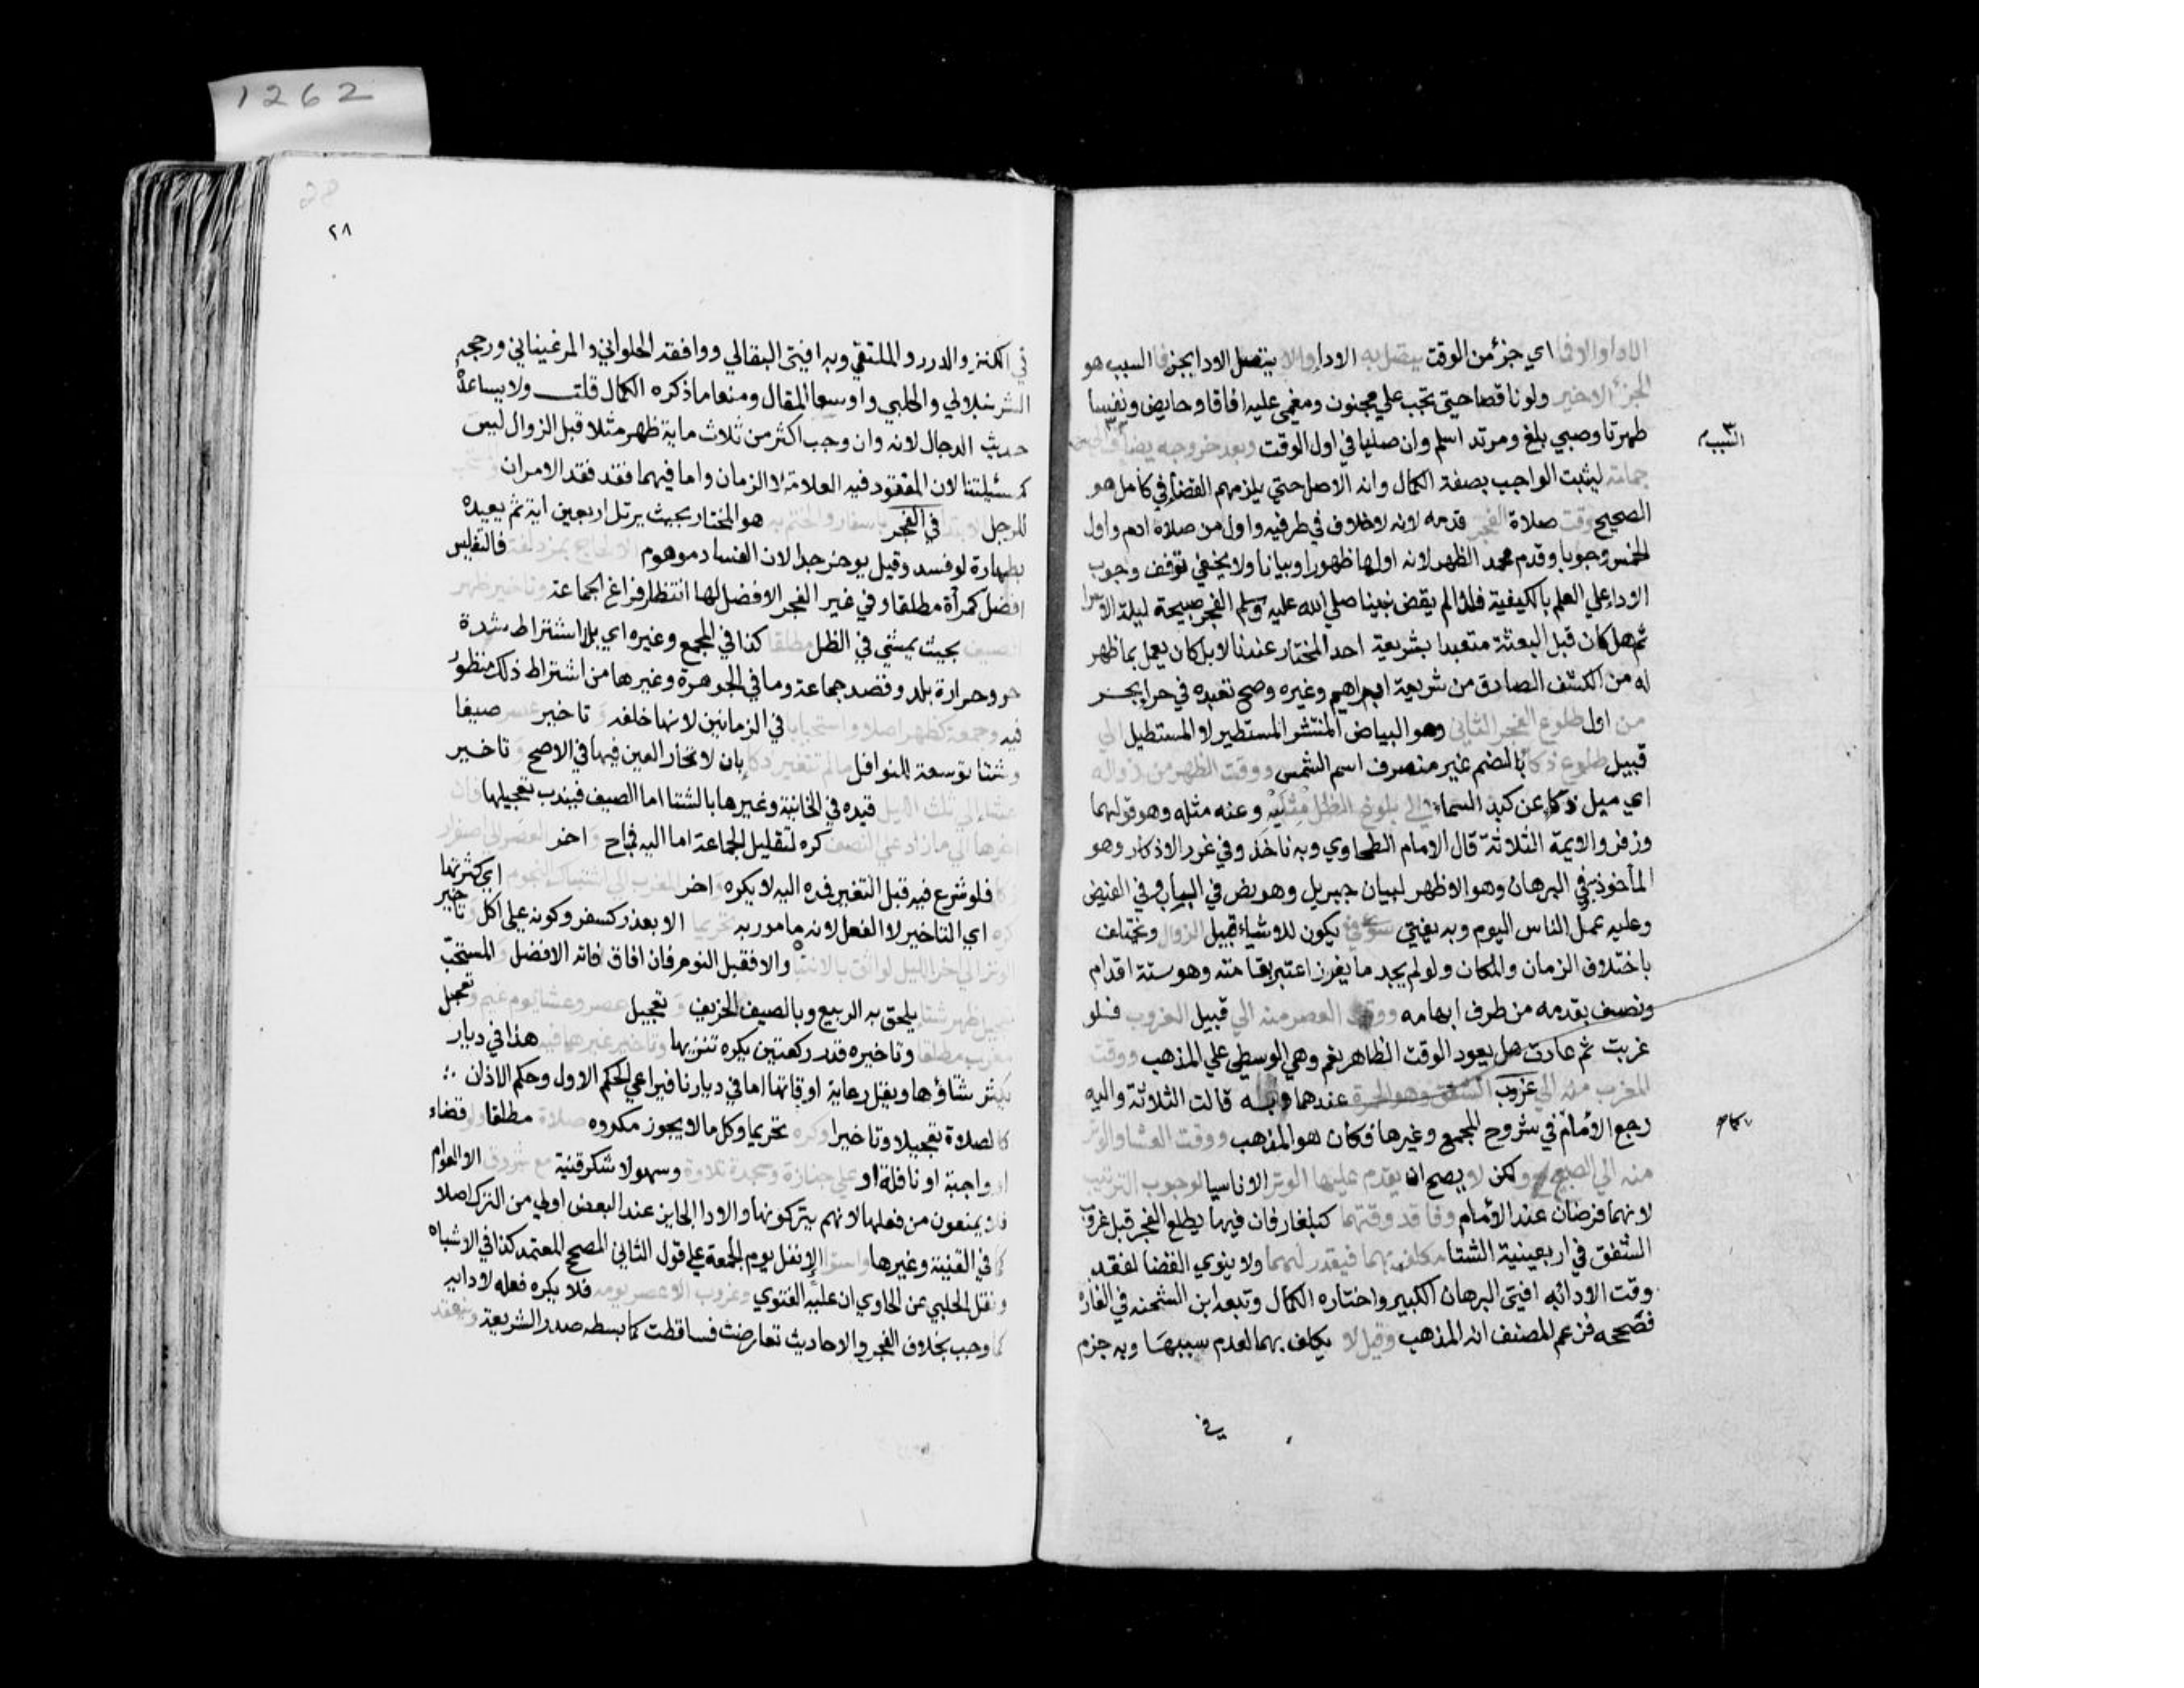 الاداوالافما اي جزؤ من الوقت يتصل به الاداوالا يتصل الادابجزفا السبب هو
الجزؤ الاخير ولو ناقصا حتي تجب علي مجنون ومغمي عليه افاقا وحايض ونفسا
طهرتا وصبي بلغ ومرتد اسلم وان صليا في اول الوقت وبعد خروجه يضاف
السبب
جملته ليثبت الواجب بصفة الكمال وانه الاصل حتي يلزمهم القضا في كامل هو
الصحيح وقت صلاة الفجر قدمه لانه لاخلاف في طرفيه واول من صلاه ادم واول
الخمس وجوبا وقدم محمد الظهر لانه اولها ظهورا وبيانا ولا يخفي توقف وجوب
الاداعلي العلم بالكيفية فلذا لم يقض نبينا صلي الله عليه وسلم الفجر صبيحة ليلة الاسرا
ثم هل كان قبل البعثة متعبدا بشريعة احد المختار عندنا لا بل كان يعمل بما ظهر
له من الكشف الصادق من شريعة ابراهيم وغيره وصح تعبده في حرا بحر
من اول طلوع الفجر الثاني وهو البياض المنتشر المستطير لا المستطيل الي
قبيل طلوع ذكا بالضم غير منصرف اسم الشمس ووقت الظهر من زواله
اي ميل ذكا عن كبد السماء الي بلوغ الظل مثليه وعنه مثله وهو قولهما
وزفر والايمة الثلاثة قال الامام الطحاوي وبه ناخذ وفي غرر الاذكار وهو
المأخوذ به وفي البرهان وهو الاظهر لبيان جبريل وهو نص في الباب وفي الفيض
وعليه عمل الناس اليوم وبه يفتي سوي في يكون للاشياء قبيل الزوال ويختلف
باختلاف الزمان والمكان ولو لم يجد ما يغرز اعتبر بقامته وهو ستة اقدام
ونصف بقدمه من طرف ابهامه ووقت العصر منه الي قبيل الغروب فلو
غربت ثم عادت هل يعود الوقت الظاهر نعم وهي الوسطي علي المذهب ووقت
المغرب منه الي غروب الشفق وهو الحمرة عندهما وبه قالت الثلاثة واليه
رجع الامام في شروح المجمع وغيرها فكان هو المذهب ووقت العشا والوتر
منه الي الصبح ولكن لا يصح ان يقدم عليها الوتر الا ناسيا لوجوب الترتيب
لانهما فرضان عند الامام وفاقد وقتهما كبلغار فان فيها يطلع الفجر قبل غروب
الشفق في اربعينية الشتا مكلف بهما فيقدر لهما ولا ينوي القضا لفقد
وقت الادا به افتي البرهان الكبير واختاره الكمال وتبعه ابن الشحنه في الغازه
فصححه فزعم المصنف انه المذهب وقيل لا يكلف بهما لعدم سببهما وبه جزم
في
٢٨
في الكنز والدرر والملتقي وبه افتي البقالي ووافقه الحلواني والمرغيناني ورجحه
الشرنبلالي والحلبي واوسعا المقال ومنعا ما ذكره الكمال قلت ولا يساعده
حديث الدجال لانه وان وجب اكثر من ثلاث ماية ظهر مثلا قبل الزوال ليس
كمسئلتنا لان المفقود فيه العلامة لا الزمان واما فيهما فقد فقد الامران والمستحب
للرجل الابتدا في الفجر باسفار والختم به هو المختار بحيث يرتل اربعين اية ثم يعيده
بطهارة لو فسد وقيل يوخر جدا لان الفساد موهوم الا لحاج بمزدلفة فالتغليس
افضل كمرأة مطلقا وفي غير الفجر الافضل لها انتظار فراغ الجماعة وتاخير ظهر
الصيف بحيث يمشي في الظل مطلقا كذا في المجمع وغيره اي بلا اشتراط شدة
حر وحرارة بلد وقصد جماعة وما في الجوهرة وغيرها من اشتراط ذلك منظور
فيه وجمعة كظهر اصلا واستحبابا في الزمانين لانها خلفه و تاخير عصر صيفا
وشتا توسعة للنوافل ما لم تتغير ذكا بان لا تحار العين فيها في الاصح و تاخير
عشاء الي ثلث الليل قيده في الخانية وغيرها بالشتا اما الصيف فيندب تعجيلها فان
اخرها الي ما زاد علي النصف كره لتقليل الجماعة اما اليه فمباح و اخر العصر الي اصفرار
ذكا فلو شرع فيه قبل التغير فمده اليه لا يكره و اخر المغرب الي اشتباك النجوم اي كثرتها
كره اي التاخير لا الفعل لانه مامور به تحريما الا بعذر كسفر وكونه علي اكل وتاخير
الوتر الي اخر الليل لواثق بالانتباه والا فقبل النوم فان افاق فاته الافضل والمستحب
تعجيل ظهر شتا يلحق به الربيع وبالصيف الخريف و تعجيل عصر وعشا يوم غيم وتعجيل
مغرب مطلقا وتاخيره قدر ركعتين يكره تنزيها وتاخير غيرهما فيه هذا في ديار
يكثر شتاؤها ويقل رعاية اوقاتها اما في ديارنا فيراعي الحكم الاول وحكم الاذان
كالصلاة تعجيلا وتاخيرا وكره تحريما وكل ما لا يجوز مكروه صلاة مطلقا ولو قضاء
او واجبة او نافلة او علي جنازة وسجدة تلاوة وسهو لا شكر قنية مع شروق الا العوام
فلا يمنعون من فعلها لانهم يتركونها والادا الجايز عند البعض اولي من الترك اصلا
كما في القنية وغيرها واستوا الا نفل يوم الجمعة علي قول الثاني المصحح المعتمد كذا في الاشباه
ونقل الحلبي عن الحاوي ان عليه الفتوي وغروب الا عصر يومه فلا يكره فعله لادايه
كما وجب بخلاف الفجر والاحاديث تعارضت فتساقطت كما بسطه صدر الشريعة وينعقد
1262